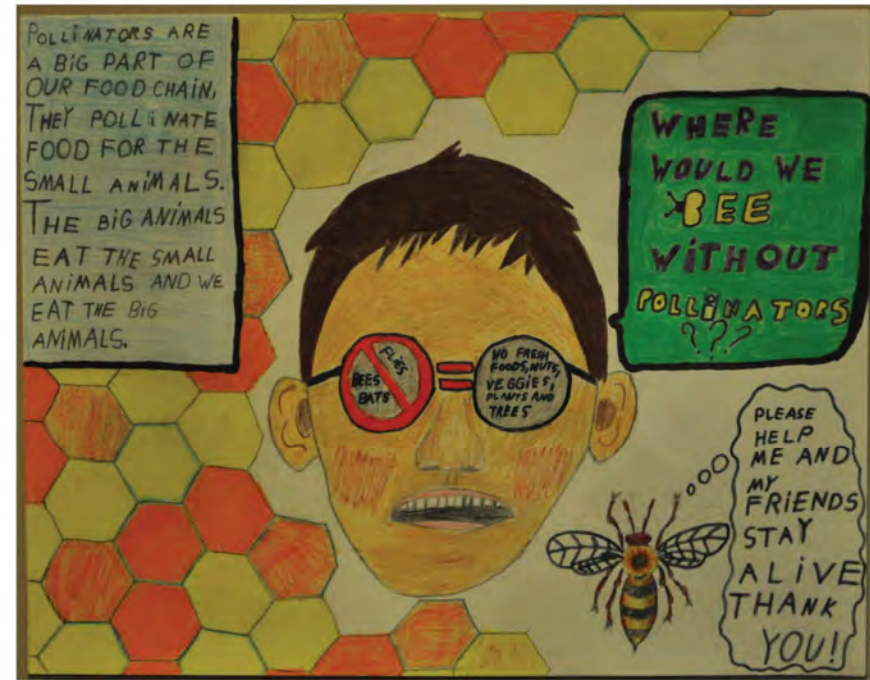 POLLINATORS ARE
A BIG PART OF
OUR FOOD CHAIN,
THEY POLLINATE
FOOD FOR THE
SMALL ANIMALS.
THE BIG ANIMALS
EAT THE SMALL
ANIMALS AND WE
EAT THE BIG
ANIMALS.
WHERE
WOULD WE
BEE
WITHOUT
POLLINATORS
???
FLIES
BEES
BATS
=
NO FRESH
FOODS, NUTS,
VEGGIES,
PLANTS AND
TREES
PLEASE
HELP
ME AND
MY
FRIENDS
STAY
ALIVE
THANK
YOU!